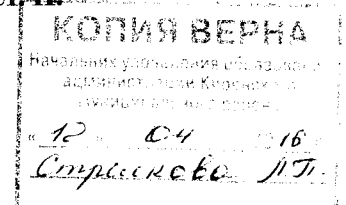 КОПИЯ ВЕРНА
Начальник управления образования
администрации
муниципального района
«12» 04 2016
Л.П.